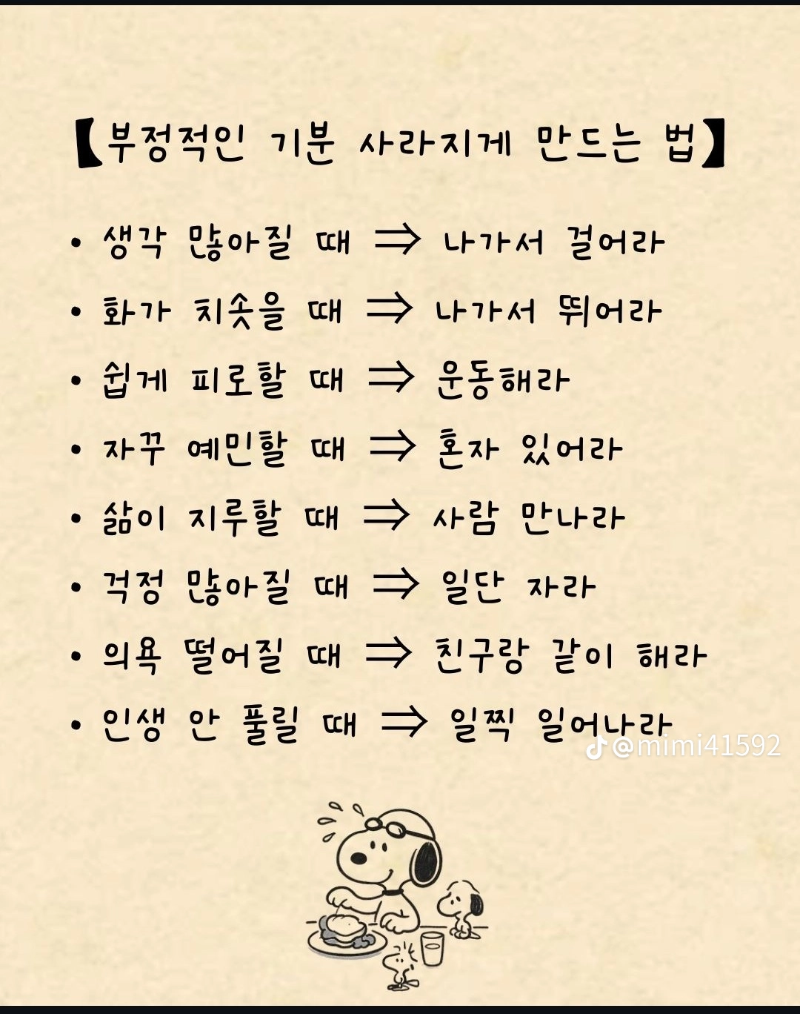 【부정적인 기분 사라지게 만드는 법】
• 생각 많아질 때 ⇒ 나가서 걸어라
• 화가 치솟을 때 ⇒ 나가서 뛰어라
• 쉽게 피로할 때 ⇒ 운동해라
• 자꾸 예민할 때 ⇒ 혼자 있어라
• 삶이 지루할 때 ⇒ 사람 만나라
• 걱정 많아질 때 ⇒ 일단 자라
• 의욕 떨어질 때 ⇒ 친구랑 같이 해라
• 인생 안 풀릴 때 ⇒ 일찍 일어나라
@mimi41592